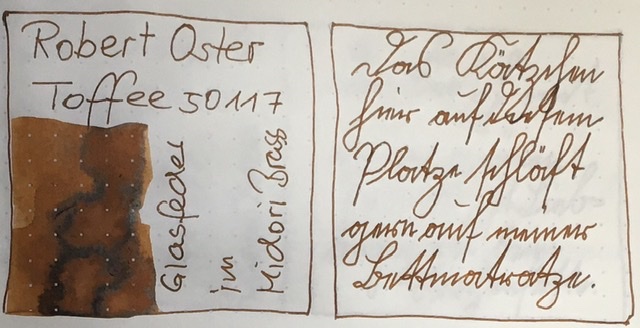 Robert Oster
Toffee 50117
Glasfeder
im
Midori Brass
Das Kätzchen
hier auf diesem
Platze schläft
gern auf meiner
Bettmatratze.